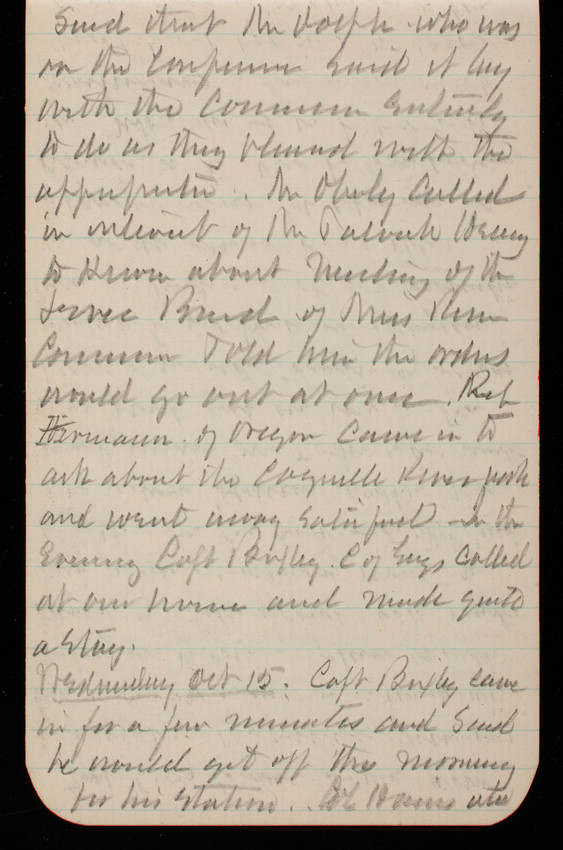 Said that Mr Dolph who was
on the Conference said it lay
with the Commission Entirely
to do as they pleased with the
appropriation. Mr Obely Called
in interest of Mr
to Know about Meeting of the
Board of Miss River
Commission Told him the orders
would go out at once. Rep
Hermann of Oregon Came in to
ask about the Coquille River
and went away satisfied In the
Evening Capt Bixby C of Engs called
at our home and made quite
a stay.
Wednesday Oct 15. Capt Bixby came
in for a few minutes and Said
he would get off this morning
for his Station.